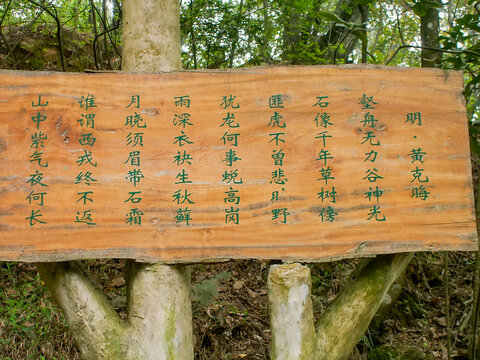 明·黄克晦
壑舟无力谷神光
石像千年草树傍
匪虎不曾悲旷野
犹龙何事蜕高岗
雨深衣袂生秋藓
月晓须眉带石霜
谁谓西戎终不返
山中紫气夜何长